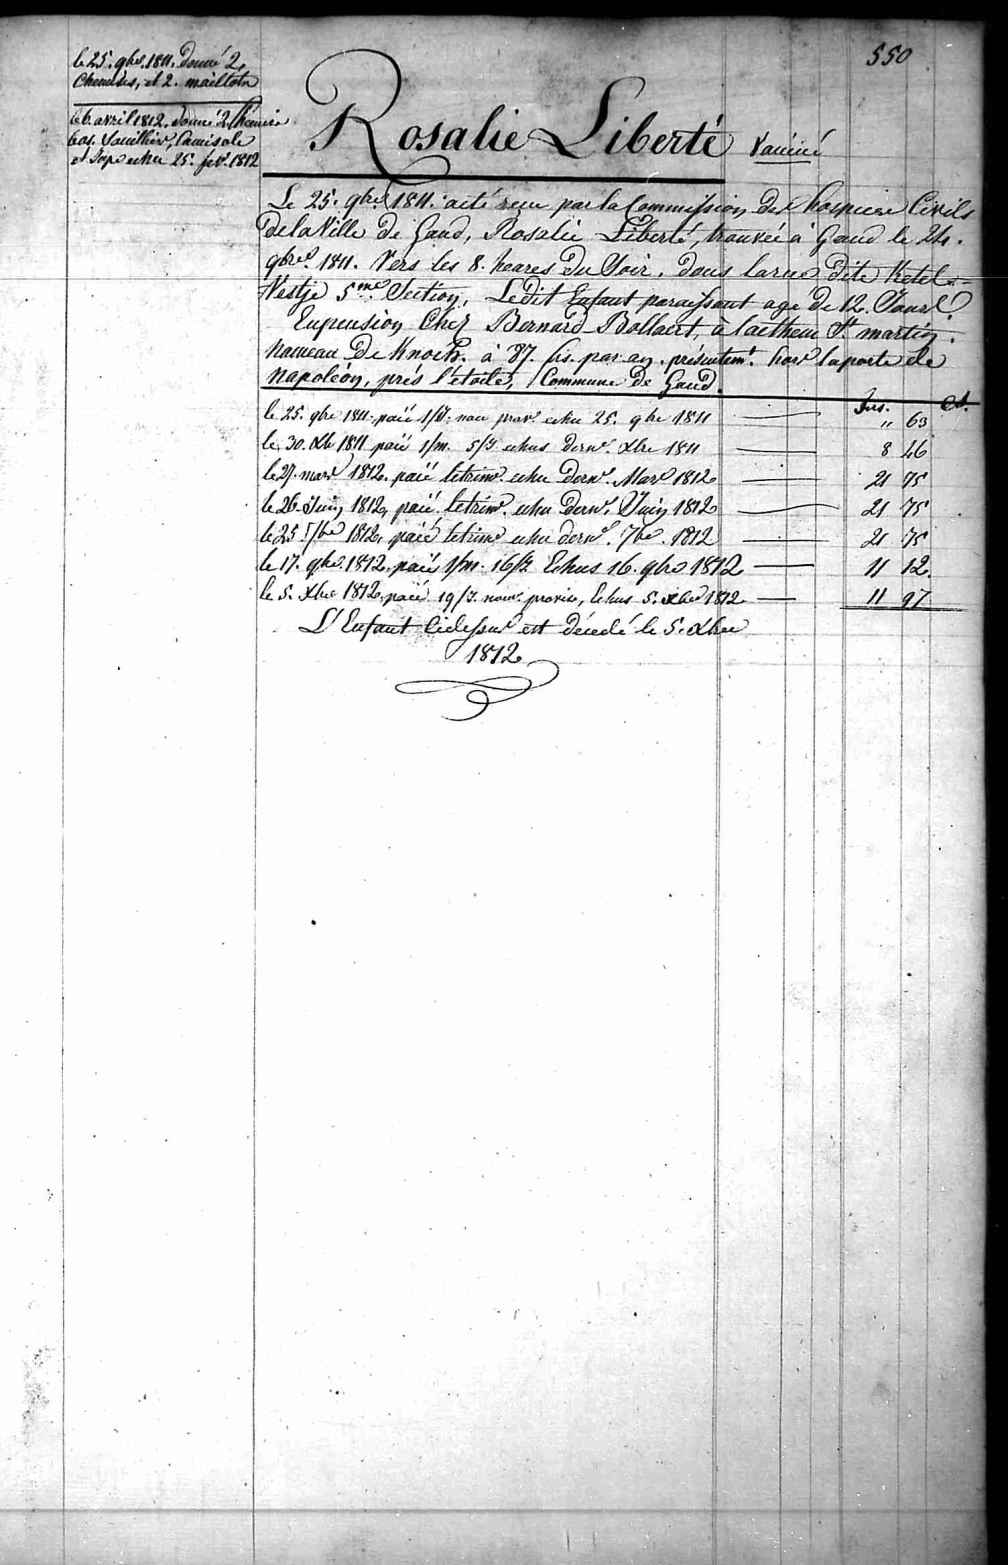 550
le 25. 9bre. 1811. Donné 2.
Chemises, et 2. maillots
le 6. avril 1812. donné 2. Chemise
bas, Souillier, Camisole
et Jupe echu 25. fev. 1812
Rosalie Liberté Vacciné
Le 25. 9bre 1811. a été recu par la Commission des hospices Civils
de la Ville de Gand, Rosalie Liberté, trouvée à Gand le 24.
9bre. 1811. Vers les 8. heures du Soir, dans la rue dite Ketel=
Vestje 5me. Section, Ledit Enfant paraissant agé de 12. Jours.
En pension Chez Bernard Bollaert, à Laethem St. martin.
hameau de Knock. à 87. frs. par an. présentemt. hors la porte de
napoléon, près l'étoile, Commune de Gand.
frs. Ct.
le 25. 9bre 1811. paié 1/J. nou prov. echu 25. 9bre 1811 " 63
le 30. Xbre 1811 paié 1/m. 5/J echus dern. Xbre 1811 8 46
le 27. mars 1812. paié le trim. echu dern. Mars 1812 21 75
le 26. Juin 1812, paié le trim. echu dern. Juin 1812 21 75
le 25. 7bre 1812, paié le trim. echu dern. 7bre. 1812 21 75
le 17. 9bre. 1812. paié 1/m. 16/J. Echus 16. 9bre 1812 11 12.
le 5. Xbre 1812, paié 19/J. nour. provis, Echus 5. Xbre 1812 11 97
L'Enfant Cidessus est décedé le 5. Xbre
1812